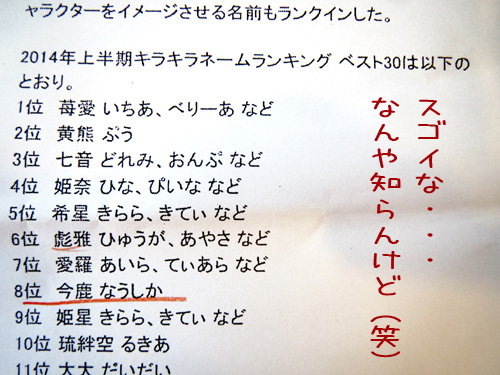 ャラクターをイメージさせる名前もランクインした。
2014年上半期キラキラネームランキング ベスト30は以下の
とおり。
1位 苺愛 いちあ、べりーあ など
2位 黄熊 ぷう
3位 七音 どれみ、おんぷ など
4位 姫奈 ひな、ぴいな など
5位 希星 きらら、きてぃ など
6位 彪雅 ひゅうが、あやさ など
7位 愛羅 あいら、てぃあら など
8位 今鹿 なうしか
9位 姫星 きらら、きてぃ など
10位 琉絆空 るきあ
11位 大大 だいだい
スゴイな・・・・
なんや知らんけど(笑)